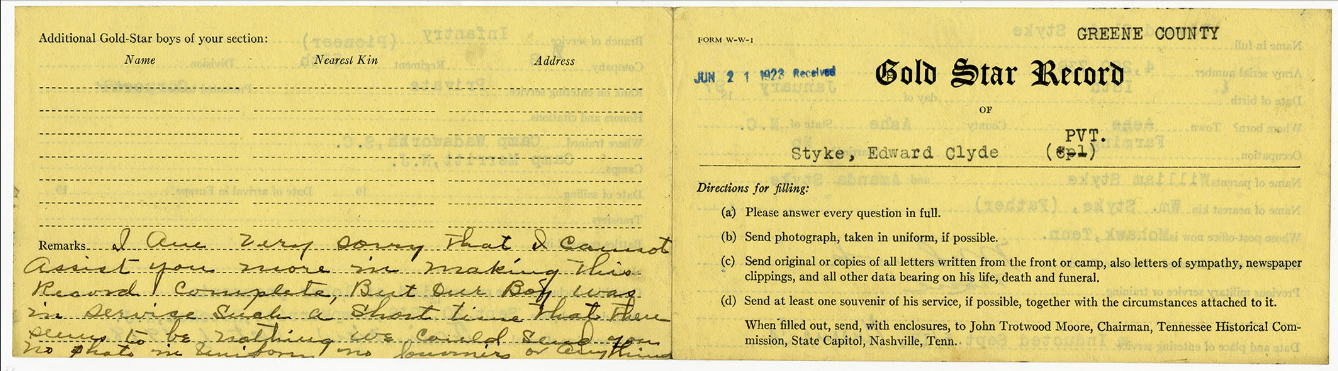 Additional Gold-Star boys of your section:
Name Nearest Kin Address
Remarks. I Am Very sorry that I cannot
Assist you more in making this
Record Complete, But Our Boy was
in service such a short time that there
seems to be nothing we could send you
no photo in uniform, no souveners or anything
FORM W-W-1
GREENE COUNTY
JUN 21 1923 Received
Gold Star Record
OF
PVT.
Styke, Edward Clyde (Cpl)
Directions for filling:
(a) Please answer every question in full.
(b) Send photograph, taken in uniform, if possible.
(c) Send original or copies of all letters written from the front or camp, also letters of sympathy, newspaper
clippings, and all other data bearing on his life, death and funeral.
(d) Send at least one souvenir of his service, if possible, together with the circumstances attached to it.
When filled out, send, with enclosures, to John Trotwood Moore, Chairman, Tennessee Historical Com-
mission, State Capitol, Nashville, Tenn.